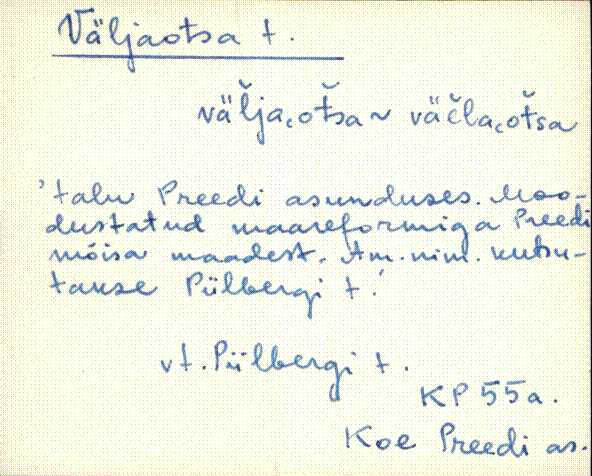 Väljaotsa t.
väl̆ja‿ot̆sa ~ väc̆la‿ot̆sa
'talu Preedi asunduses. Moo-
dustatud maareformiga Preedi
mõisa maadest. Am. nim. kutsu-
takse Piilbergi t.'
vt. Piilbergi t.
KP 55a.
Koe Preedi as.